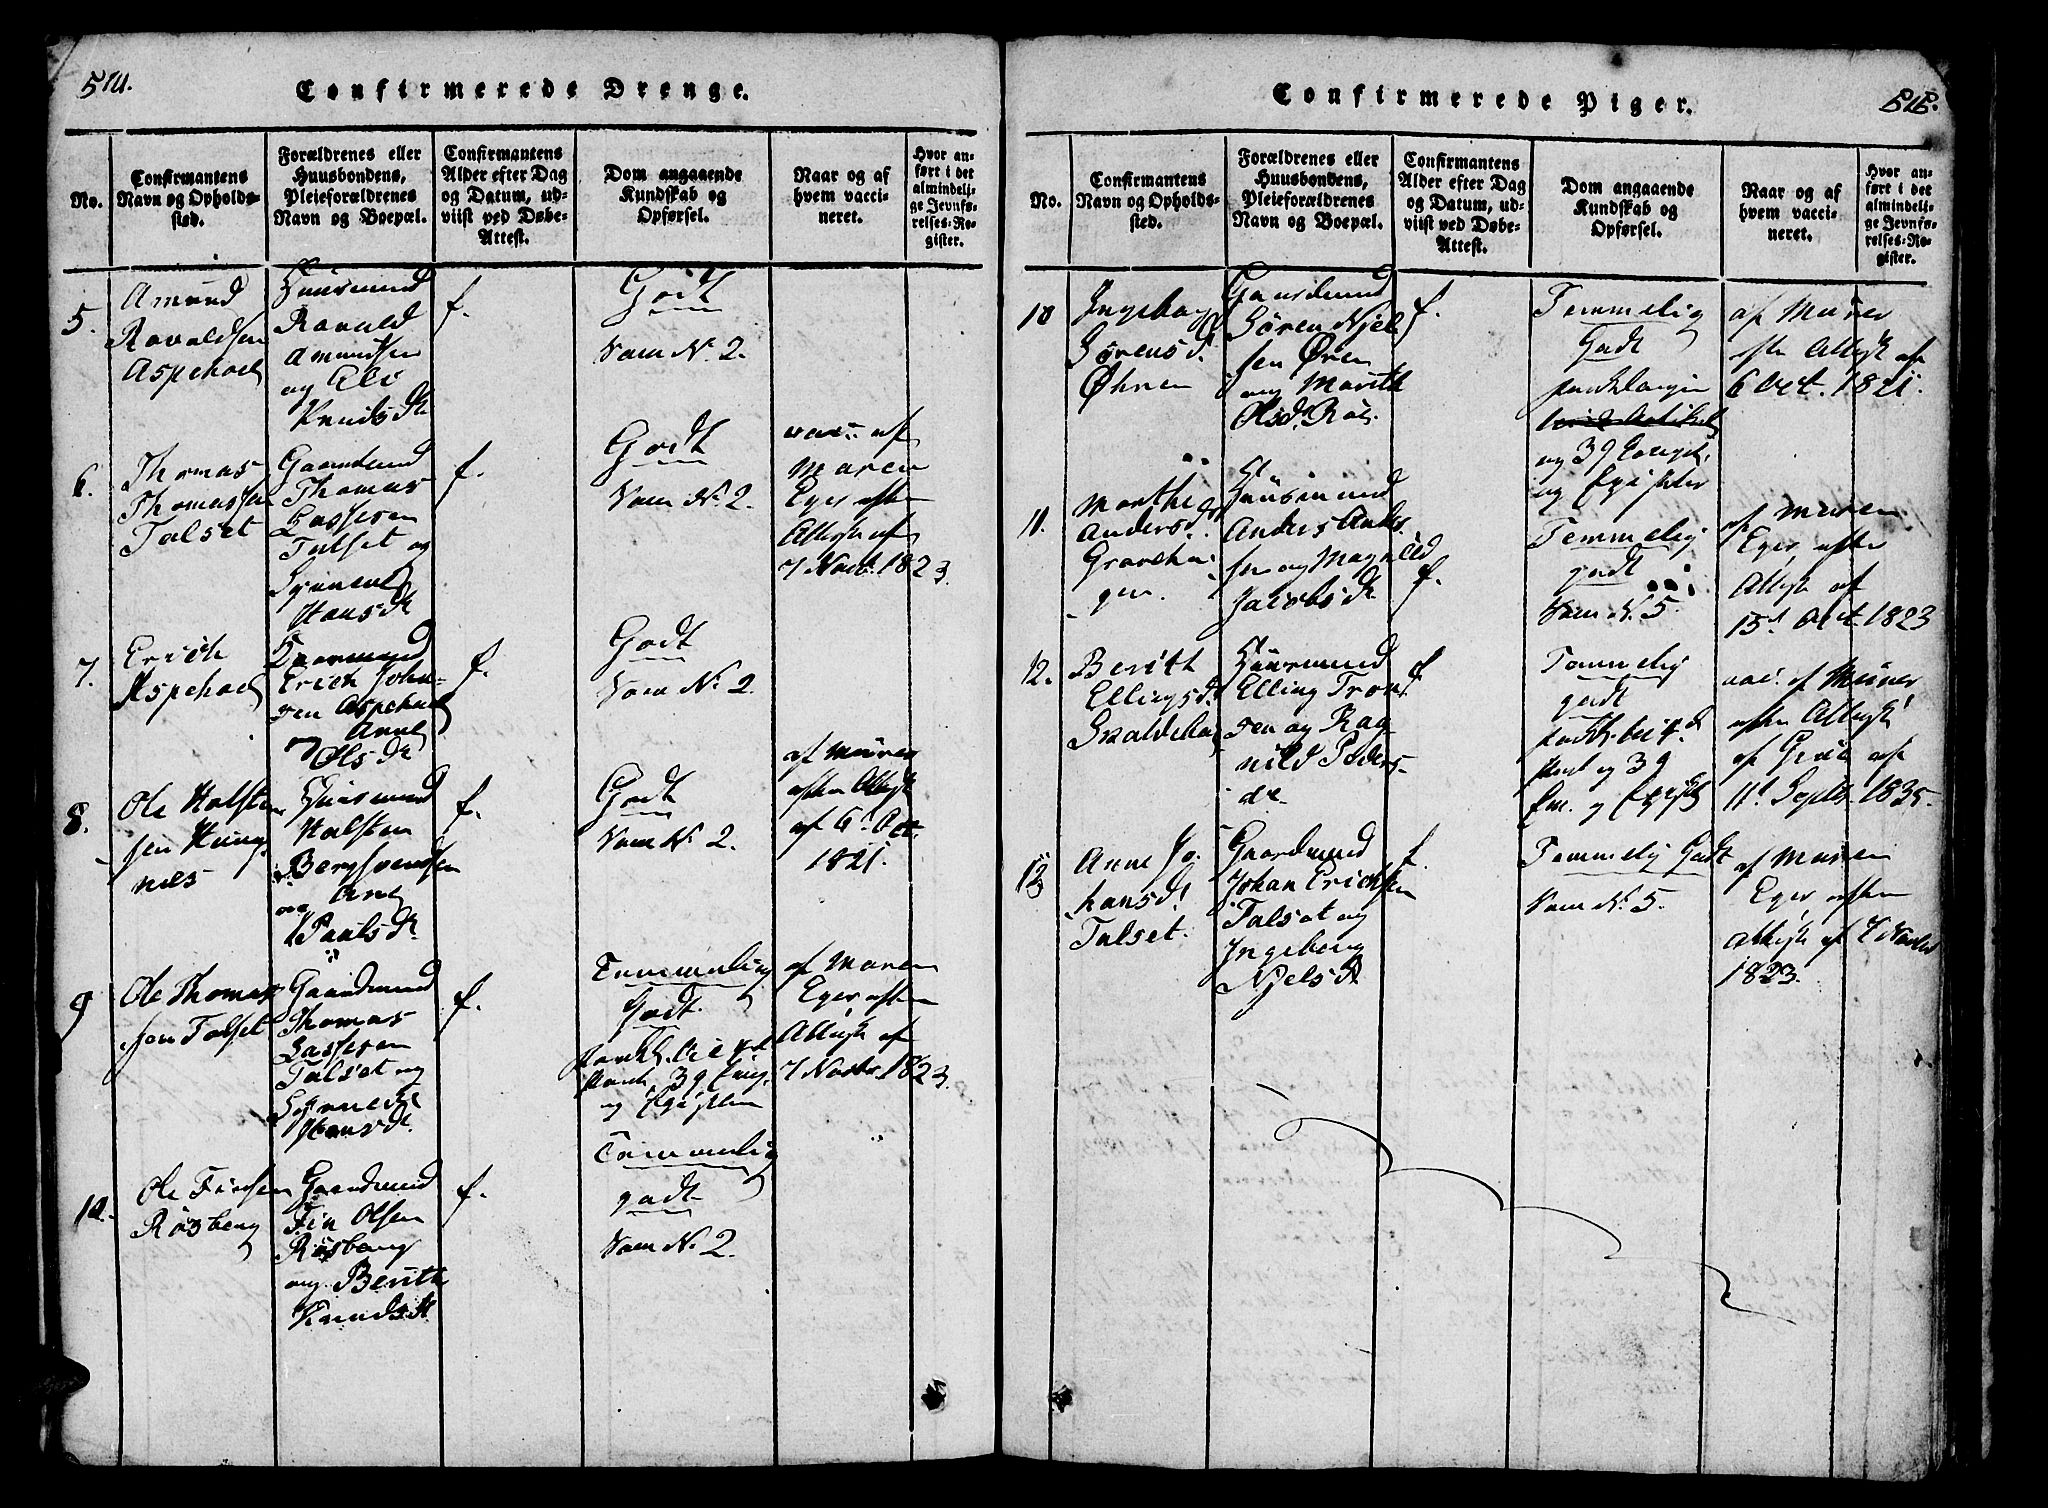 514.
Confirmerede Drenge.
No.
Confirmantens
Navn og Opholds-
sted.
Forældrenes eller
Huusbondens,
Pleieforældrenes
Navn og Boepæl.
Confirmantens
Alder efter Dag
og Datum, ud-
viist ved Døbe-
Attest.
Dom angaaende
Kundskab og
Opførsel.
Naar og af
hvem vacci-
neret.
Hvor an-
ført i det
almindeli-
ge Jevnfø-
relses-Re-
gister.
5.
Amund
Ravaldsen
Aspehoel
Huusmand
Ravald
Amundsen
og Eli
Knudsd.
f.
Godt
Som N. 2.
6.
Thomas
Thomassen
Talset
Gaardmand
Thomas
Lassesen
Talset og
Hansd.
f.
Godt
Som N. 2.
vac. af
Maren
Eger efter
Attest af
7 Novb. 1823.
7.
Erich
Aspehoel
Erich John-
sen Aspehoel
og Anne
Olsd.
f.
Godt
Som N. 2
8.
Ole Halsten
sen Kung
næs
Huusmand
Halsten
Bergsvendsen
og Ane
Paalsd.
f.
Godt
Som N. 2.
af Murer
efter Attest
af 6 Oct.
1821.
9
Ole Thomas
sen Talset
Gaardmand
Thomas
Lassesen
Talset og
Hansd.
f.
Temmelig
Godt.
og Epistler
af Maren
Eger efter
Attest af
7 Novbr. 1823.
10.
Ole Finsen
Røsberg
Gaardmand
Fin Olsen
Røsberg
og Berith
Knudsd.
f.
Temmelig
godt
Som N. 2.
515.
Confirmerede Piger.
No.
Confirmantens
Navn og Opholds-
sted.
Forældrenes eller
Huusbondens,
Pleieforældrenes
Navn og Boepæl.
Confirmantens
Alder efter Dag
og Datum, ud-
viist ved Døbe-
Attest.
Dom angaaende
Kundskab og
Opførsel.
Naar og af
hvem vacci-
neret.
Hvor an-
ført i det
almindeli-
ge Jevnfø-
relses-Re-
gister.
10
Ingeborg
Sørensd.
Øhren
Gaardmand
Søren Njel
sen Øren
og Marith
Olsd.
f.
Temmelig
Godt
og 39 Evangel.
og Epistler
af Murer
efter Attest af
6 Oct. 1821.
11.
Marthe
Andersd.
Groveha
gen.
Huusmand
Anders Anders
sen og Magnild
Jacobsd.
f.
Temmelig
godt
Som N. 5.
af Maren
Eger, efter
Attest af
15d Oct. 1823
12.
Berith
Ellingsd.
Huusmand
Elling Trond
sen og Rag
nild Peders-
d.
f.
Temmelig
godt
vac. af Murer
efter Attest
af
11d Septbr. 1835.
13
Anne Jo
hansd.
Talset.
Gaardmand
Johan Erichsen
Talset og
Ingeberg
Njelsd.
f.
Temmelig Godt
Som N. 5.
af Maren
Eger efter
Attest af 7 Novbr
1823.